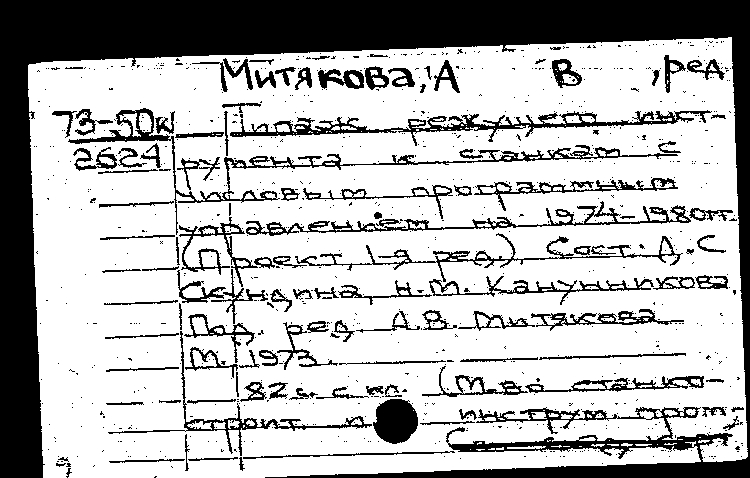 Митякова, А В , ред
73-50к Типаж режущего инст-
2624 румента к станкам с
числовым программным
управлением на 1974-1980гг.
(Проект, 1-я ред.). Сост.: Д.С
Скундина, Н.М. Канунникова.
Под. ред. А.В. Митякова
М., 1973.
82 с. с ил. (М-во станко-
строит. и инструм. пром-